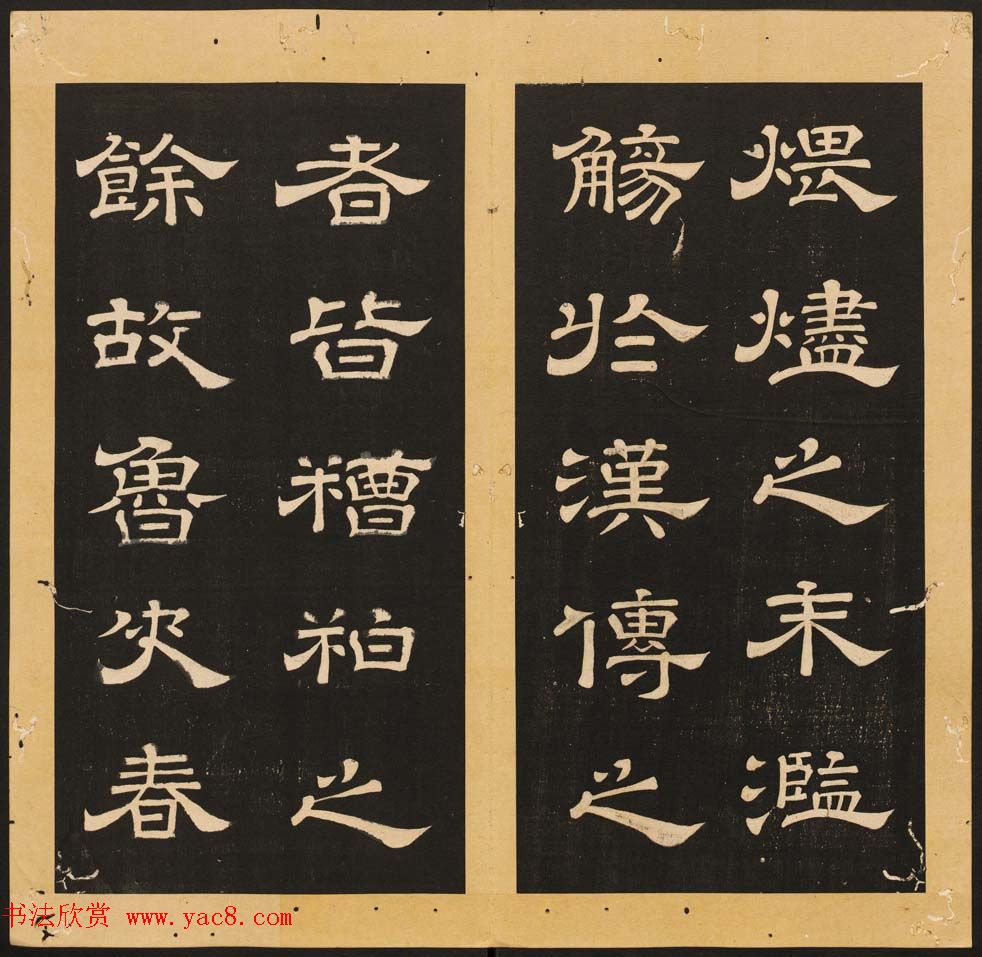 煨燼之末濫
觴於漢傳之
者皆糟粕之
餘故魯史春
书法欣赏 www.yac8.com